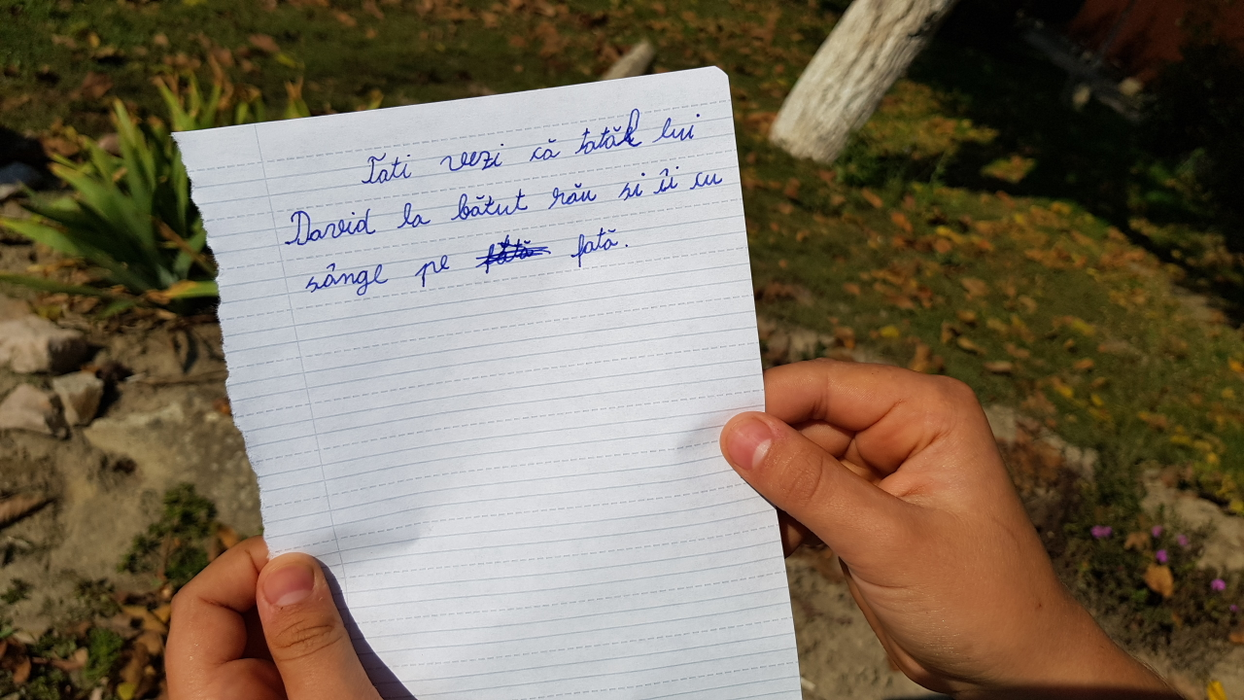 Tati vezi că tatăl lui
David la bătut rău si îi cu
sânge pe fată.